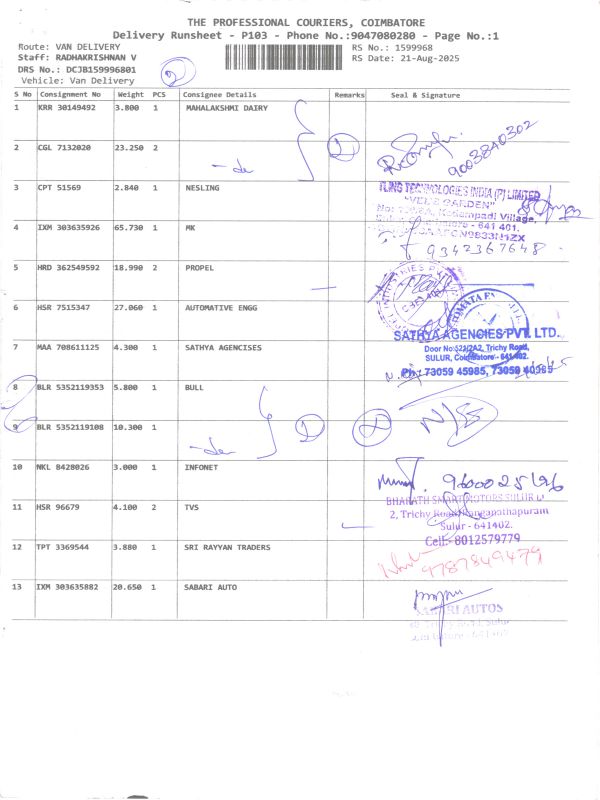 THE PROFESSIONAL COURIERS, COIMBATORE
Delivery Runsheet - P103 - Phone No.:9047080280 - Page No.:1
Route: VAN DELIVERY
RS No.: 1599968
Staff: RADHAKRISHNAN V
RS Date: 21-Aug-2025
DRS No.: DCJB159996801
2
Vehicle: Van Delivery
S No Consignment No Weight PCS Consignee Details Remarks Seal & Signature
1 KRR 30149492 3.800 1 MAHALAKSHMI DAIRY
9003840302
2 CGL 7132020 23.250 2 -do 2
3 CPT 51569 2.840 1 NESLING
TLING TECHNOLOGIES INDIA (P) LIMITED
"VEL'S GARDEN"
Kadampadi Village,
641 401.
4 IXM 303635926 65.730 1 MK
9342367648
5 HRD 362549592 18.990 2 PROPEL
6 HSR 7515347 27.060 1 AUTOMATIVE ENGG
SATHYA AGENCIES PVT. LTD.
7 MAA 708611125 4.300 1 SATHYA AGENCISES
Door No:522/2A2, Trichy Road,
SULUR, Coimbatore - 641402.
Ph: 73059 45985, 73059 40985
8 BLR 5352119353 5.800 1 BULL
N/SS
9 BLR 5352119108 10.300 1 -do
10 NKL 8428026 3.000 1 INFONET
9600025696
11 HSR 96679 4.100 2 TVS
BHARATH SMART MOTORS SULUR
2, Trichy Road, Ranganathapuram
Sulur - 641402.
Cell:- 8012579779
12 TPT 3369544 3.880 1 SRI RAYYAN TRADERS
9787849479
13 IXM 303635882 20.650 1 SABARI AUTO
SABARI AUTOS